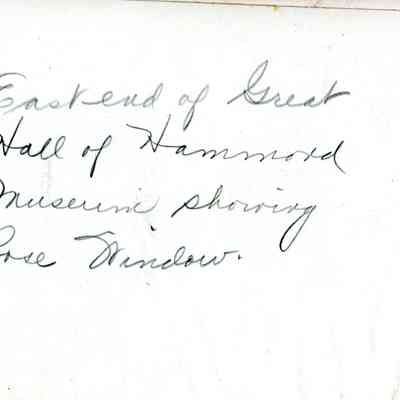 East end of Great
Hall of Hammond
Museum showing
Rose Window.